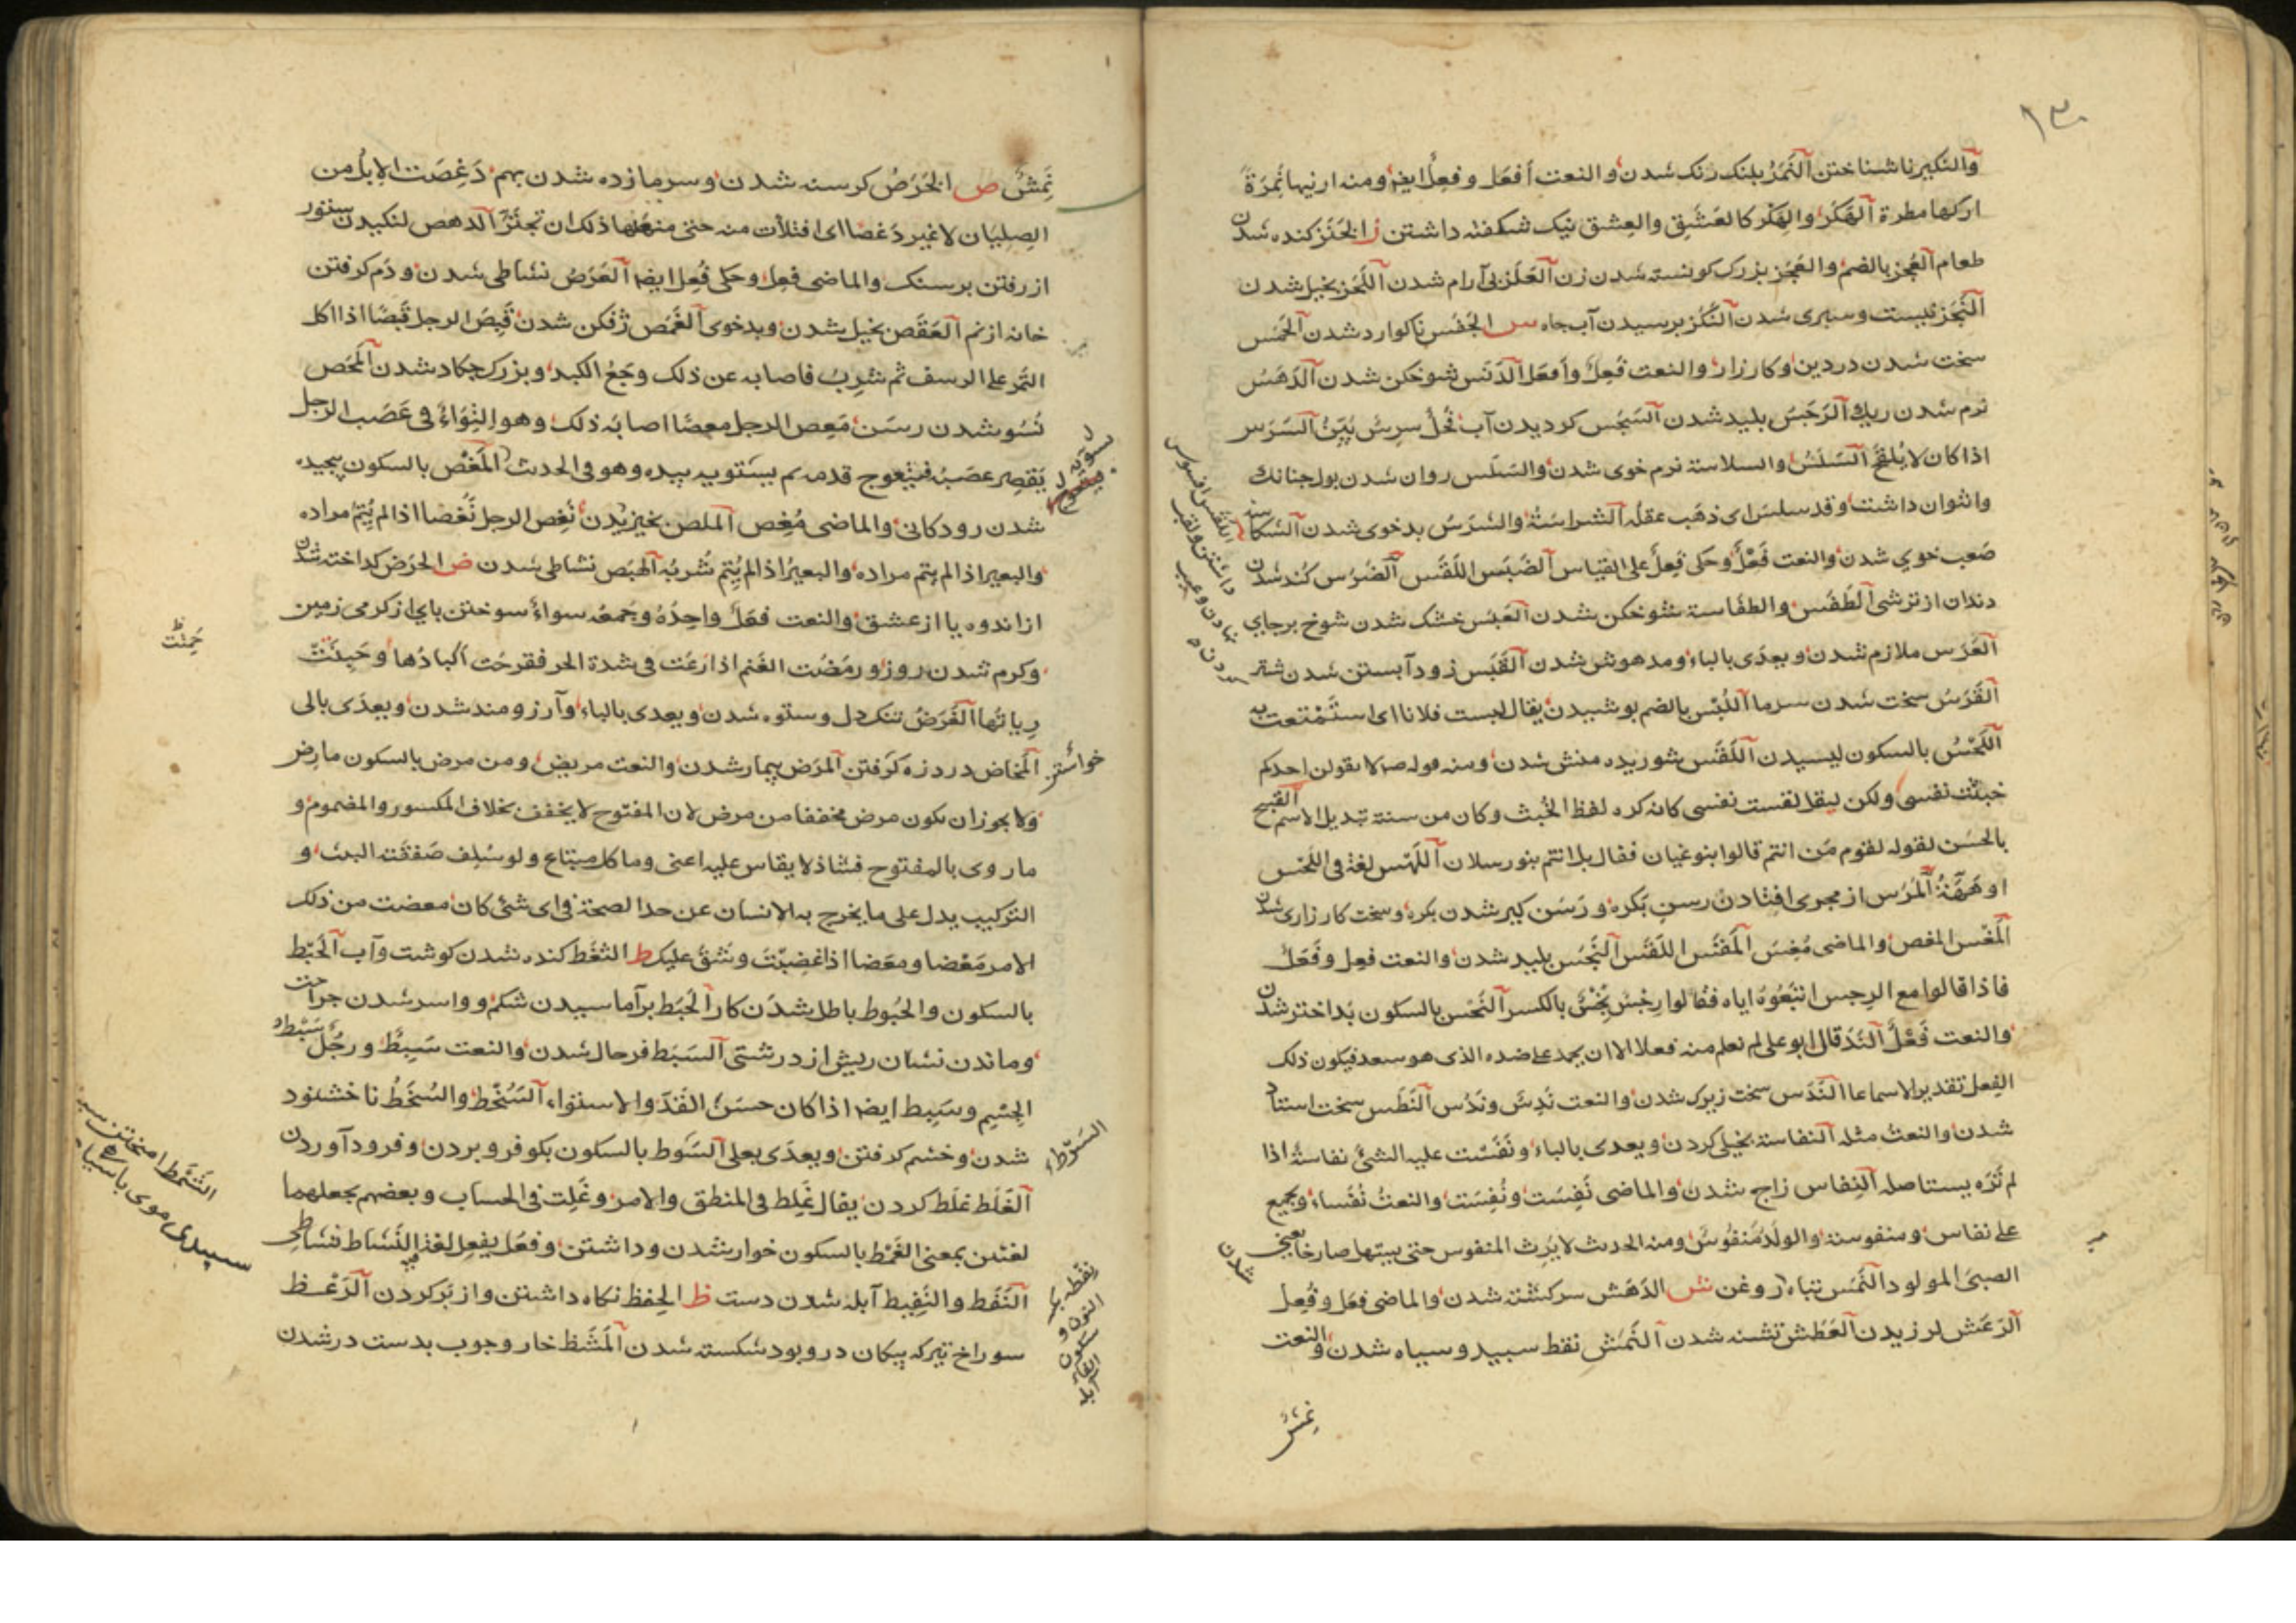 ١٣٠
والنكير ناشناختن النَمَرُ پلنک رنک شدن والنعت أفعَل وفعِلٌ ايضا ومنه ارنيها نَمِرَةً
اركها مطرة الهَكَر والهَكْر كالعَشَق والعِشق نیک شکفته داشتن ز الخَنَز کنده شدن
طعام العُجز بالضم والعَجَز بزرک کونسته شدن زن العَلَز بی آرام شدن اللَحَز بخیل شدن
النَجَز نیست وسپری شدن النَكَز برسیدن آب چاه س الجَفَس ناکوارد شدن الحَمَس
سخت شدن در دین وکارزار والنعت فَعِلٌ وأفعَل الدَنَس شوخکن شدن الدَهَسُ
نرم شدن ریک الرَجَسُ پلید شدن السَجَس کردیدن آب السَرَس
اذا كان لا يُلقِحُ السَلَسُ والسلاسة نرم خوی شدن والسَلَس روان شدن بول چنانک
وا نتوان داشت وقد سلس ای ذهَب عقله الشراسَةُ والشَرَسُ بدخوی شدن الشكاسة
صَعب خوی شدن والنعت فَعْلٌ وحكى فَعِلٌ على القياس الضَبَس اللَقَس الضَرَس کُند شدن
دندان از ترشی الطَفَس والطفاسة شوخکن شدن العَبَس خشک شدن شوخ بر جای
العَرَس ملازم شدن ويعدّى بالباء ومدهوش شدن القَبَس زود آبستن شدن شتر
القَرَسُ سخت شدن سرما اللُبْس بالضم پوشیدن يقال لبست فلانا ای استَمْتعت به
اللَحْسُ بالسكون لیسیدن اللَقَس شوریده منش شدن ومنه قوله صلى لا يقولن احدكم
خبثت نفسى ولكن ليقل لقست نفسى كانه كره لفظ الخُبث وكان من سنته تبديل الاسم القبيح
بالحسَن لقوله لقوم مَن انتم قالوا بنو غيان فقال بل انتم بنو رسلان اللَهَس لغة فى اللحس
او هَهّةٌ المَرَس از مجری افتادن رسن بَکره ورَسَن کیر شدن بکره وسخت کارزاری شدن
المَغْس المغص والماضى مُغِسَ المَقَس اللَقَس النَجَس پلید شدن والنعت فعِل وفَعَل
فاذا قالوا مع الرجس اتبَعُوهُ اياه فقالوا رِجْسٌ نِجْسٌ بالكسر النَحْس بالسكون بَد اختر شدن
والنعت فَعْلٌ قال ابو على لم نعلم منه فعلا الا ان يحمد على ضده الذى هو سعد فيكون ذلك
الفِعل تقديرا لا سماعا النَدَس سخت زیرک شدن والنعت نَدِسٌ ونَدُس النَطَس سخت استاد
شدن والنعتُ مثله النفاسة بخیلی کردن ويعدى بالباء ونَفِسْت عليه الشئَ نفاسةً اذا
لم تَرَه يستاصله النِفاس زاج شدن والماضى نَفِسَت ونُفِسَت والنعتُ نُفَساءُ ويجمع
على نفاس ومنفوسة والولَدُ مَنفُوسٌ ومنه الحديث لا يَرِث المنفوس حتى يستهل صارخا يعنى
الصبىَ المولود النَمَس تباه شدن روغن ش الدَهَش سرکشته شدن والماضى فعَل وفُعِل
الرَعَش لرزیدن العَطَش تشنه شدن النَمَش نقط سپید وسیاه شدن والنعت
نَمِشٌ
نَمِشٌ ص الخَرَصُ کرسنه شدن وسرمازده شدن بهم دَغِصَت الابلُ من
الصِلِيان لا غير دَغَصًا ای امتلأت منه حتى منعها ذلك ان تجتَرَّ الدهص لنکیدن ستور
از رفتن بر سنک والماضى فعِل وحكى فُعِل ايضا العَرَصُ نشاطی شدن ودَم کرفتن
خانه از نم العَقَص بخیل شدن وبدخوی الغَمَص ژفکن شدن قَبِصَ الرجل قَبَصًا اذا اكل
التمر على الريق ثم شَرِبَ فاصابه عن ذلك وجَعُ الكبد وبزرک چکاد شدن المَحَص
نُسُو شدن رسَن مَعِص الرجل معصًا اصابَه ذلك وهو التِوَاءٌ فى عَصَب الرجل
يَقصر عصَبُه فيتعوج قدمه ثم يستَويه بيده وهو فى الحدث المَغْص بالسكون پیچیده
شدن رودکانی والماضى مُغِص المَلص بخیزیدن نَغِص الرجل نَغَصا اذا لم يُتِمَّ مراده
والبعير اذا لم يتم مراده والبعيرُ اذا لم يُتِم شُربَه الهَبَص نشاطی شدن ض الحَرَض کداخته شدن
از اندوه یا از عشق والنعت فعَلٌ واحِدُهُ وجَمعُه سواءٌ سوختن پای از کرمی زمین
وکرم شدن روز ورمَضَت الغنم اذا رَعَت فى شدة الحر فقرِحَت اكبادُها وحَبِنَتْ
رِياتُها الغَرَضُ تنک دل وستوه شدن ويعدى بالباء وآرزومند شدن ويعدّى بالى
المَخاض درد زه کرفتن المَرَض بیمار شدن والنعت مريض ومن مرض بالسكون مارض
ولا يجوز ان يكون مرض مخففا من مرض لان المفتوح لا يخفف بخلاف المكسور والمضموم و
ما روى بالمفتوح فشاذ لا يقاس عليه اعنى وما كل مبتاع ولو سَلف صَفقه البيت و
التركيب يدل على ما يخرج به الانسان عن حد الصحة فى اى شئ كان معضت من ذلك
الامر مَعْضا ومعَضا اذا غضِبْتَ وشَقَّ عليك ط الثَغَط کنده شدن کوشت وآب الحَبْط
بالسكون والحُبوط باطل شدَن کار الحَبَط برآماسیدن شکم وواسر شدن جراحت
وماندن نشان ریش از درشتی السَبَط فرخال شدن والنعت سَبِطٌ ورجُلٌ سَبْط
الجِسْمِ وسَبِط ايضا اذا كان حسَنَ القَدّ والاستواء السَخَط والسُخط ناخشنود
شدن وخشم کرفتن ويعدّى بعلى السَرَط بالسكون بکو فرو بردن وفرود آوردن
الغَلَط غلَط کردن يقال غَلِط فى المنطق والامر وغَلِت فى الحساب وبعضهم يجعلهما
لغتين بمعنى الغَمْط بالسكون خوار شدن وداشتن وفعَل يفعِل لغة فيه النَشاط نشاطی
النَفَط والنَفيط آبله شدن دست ظ الحِفظ نکاه داشتن واز بَر کردن الرَعَظ
سوراخ تیر که پیکان در وبود شکسته شدن المَشَظ خار وچوب بدست در شدن
الشَمَط امیختن
سپیدی موی با سیاه
نفطة بکسر
النون و
سکون
الفاء
آبله